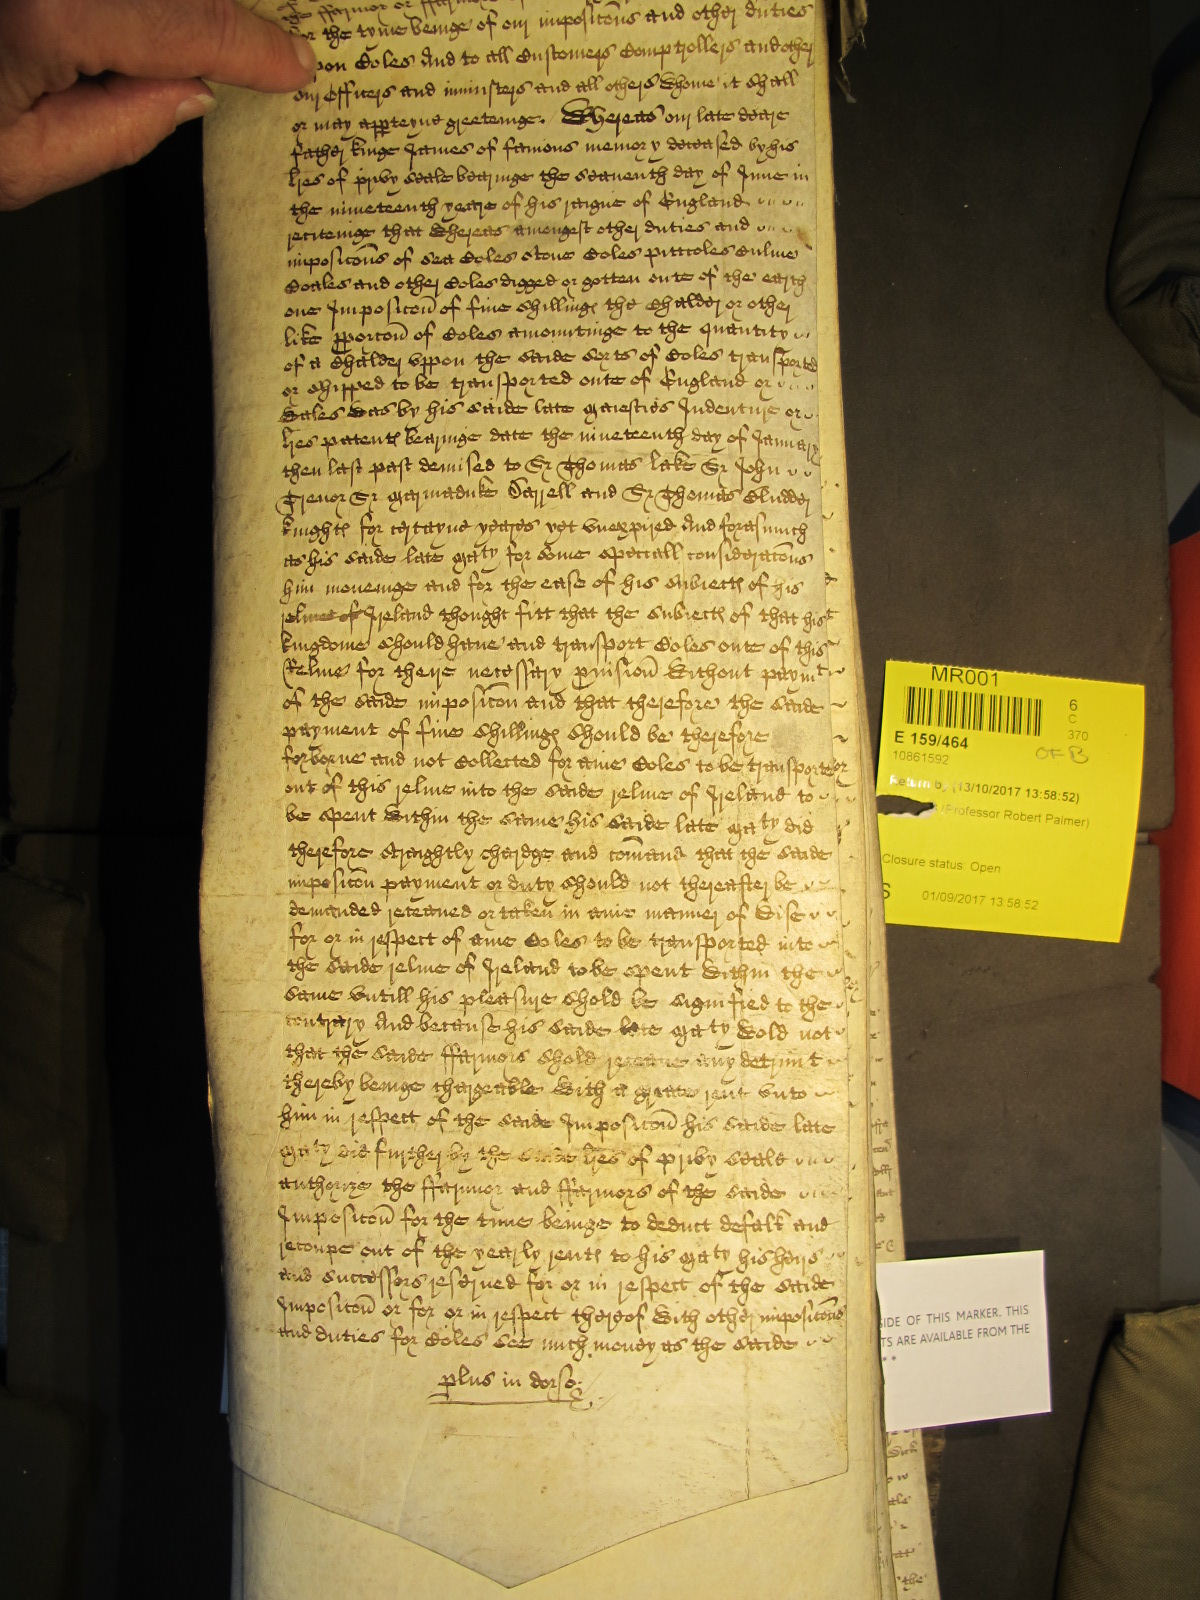 the ffarmor or ffarmors
for the tyme beinge of our imposicons and other duties
upon Coles And to all Customers Comptrollers and other
our officers and ministers and all others whome it shall
or may apperteyne greetinge. Whereas our late deare
father kinge James of famous memory deceased by his
lres of privy seale bearinge the seaventh day of June in
the nineteenth yeare of his raigne of England
recitinge that whereas amongest other duties and
imposicons of sea Coles stone Coles pittcoles Culme
Coales and other Coles digged or gotten oute of the earth
one Imposicon of five shillinges the Chalder or other
like pporcon of Coles amountinge to the quantity
of a Chalder uppon the saide sorts of Coles transported
or shipped to be transported oute of England or
Wales was by his saide late Maiesties Indenture or
lres patents bearinge date the nineteenth day of January
then last past demised to Sr Thomas Lake Sr John
Trevor Sr Marmaduke Darrell and Sr Thomas Bludder
knights for certayne yeares yet unexpired And forasmuch
as his saide late Maty for some speciall consideracons
him moveinge and for the ease of his subiects of his
relme of Ireland thought fitt that the subiects of that his
kingdome should have and transport Coles oute of this
Relme for theire necessary pvision without paymt
of the saide imposicon and that therefore the saide
payment of five shillings should be therefore
forborne and not Collected for anie Coles to be transported
out of this relme into the saide relme of Ireland to
be spent within the same his saide late Maty did
therefore straightly chardge and comand that the saide
imposicon payment or duty should not thereafter be
demanded receaved or taken in anie manner of wise
for or in respect of anie Coles to be transported into
the saide relme of Ireland to be spent within the
same untill his pleasure shold be signified to the
contrary And because his saide late Maty wold not
that the saide ffarmors shold receave any detrimt
thereby beinge chargeable with a greate rent unto
him in respect of the saide Imposicon his saide late
Maty did further by the saide lres of privy seale
authorize the ffarmor and ffarmors of the saide
Imposicon for the time beinge to deduct defalk and
recoupe out of the yearly rents to his Maty his heirs
and successors reserved for or in respect of the saide
Imposicon or for or in respect thereof with other imposicons
and duties for Coles soe much money as the saide
plus in dorso
MR001
6
C
370
E 159/464
OF B
10861592
Return by (13/10/2017 13:58:52)
(Professor Robert Palmer)
Closure status: Open
S
01/09/2017 13:58:52
SIDE OF THIS MARKER. THIS
TS ARE AVAILABLE FROM THE